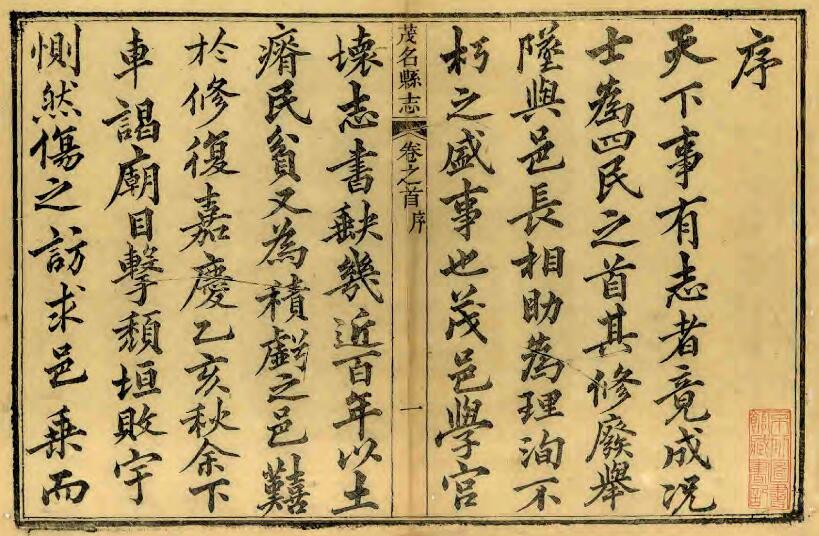 序
天下事有志者竟成况
士為四民之首其修廢舉
墜與邑長相助為理洵不
朽之盛事也茂邑學官
茂名縣志 卷之首 序 一
壞志書缺幾近百年以土
瘠民貧又為積虧之邑囏
於修復嘉慶乙亥秋余下
車謁廟目擊頹垣敗宇
惻然傷之訪求邑乗而